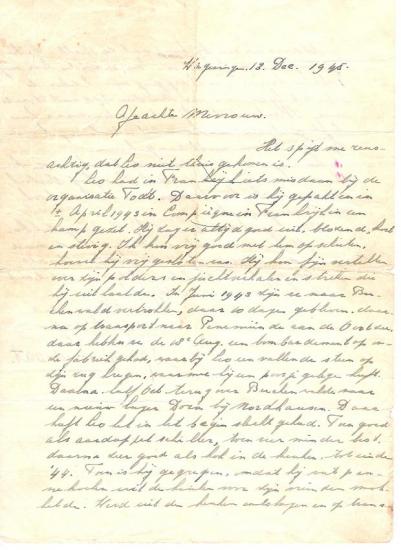 Wageningen. 13. Dec. 1945.
Geachte Mevrouw.
Het spijt me reus-
achtig, dat Leo niet thuis gekomen is.
Leo had in Frankrijk iets misdaan bij de
organisatie Todt. Daarvoor is hij gepakt en in
April 1943 in Compiegne in Frankrijk in een
kamp gezet. Hij zag er altijd goed uit, blozende,
en stevig. Ik kon vrij goed met hem opschieten,
hoewel hij vrij was. Hij kon fijn vertellen
over zijn polders en en streken die
hij uit haalde. In Juni 1943 zijn we naar Bu-
chenwald vertrokken, daar 10 dagen gebleven, daar-
na op transport naar Penemünde aan de Oostzee
daar hebben we de 18e Aug. een bombardement op
de fabriek gehad, waarbij Leo een vallende steen op
zijn rug kreeg, waarmee hij een poosje gelegen heeft.
Daarna half Oct. terug over Buchenwalde naar
een nieuw lager Dora bij Nordhausen. Daar
heeft Leo het in het begin slecht gehad. Toen goed
als aardappelschiller, toen weer minder
daarna zeer goed als kok in de keuken, tot einde
'44. Toen is hij gegrepen, omdat hij
uit de keuken voor zijn vrienden
. Werd uit den keuken ontslagen en op trans-